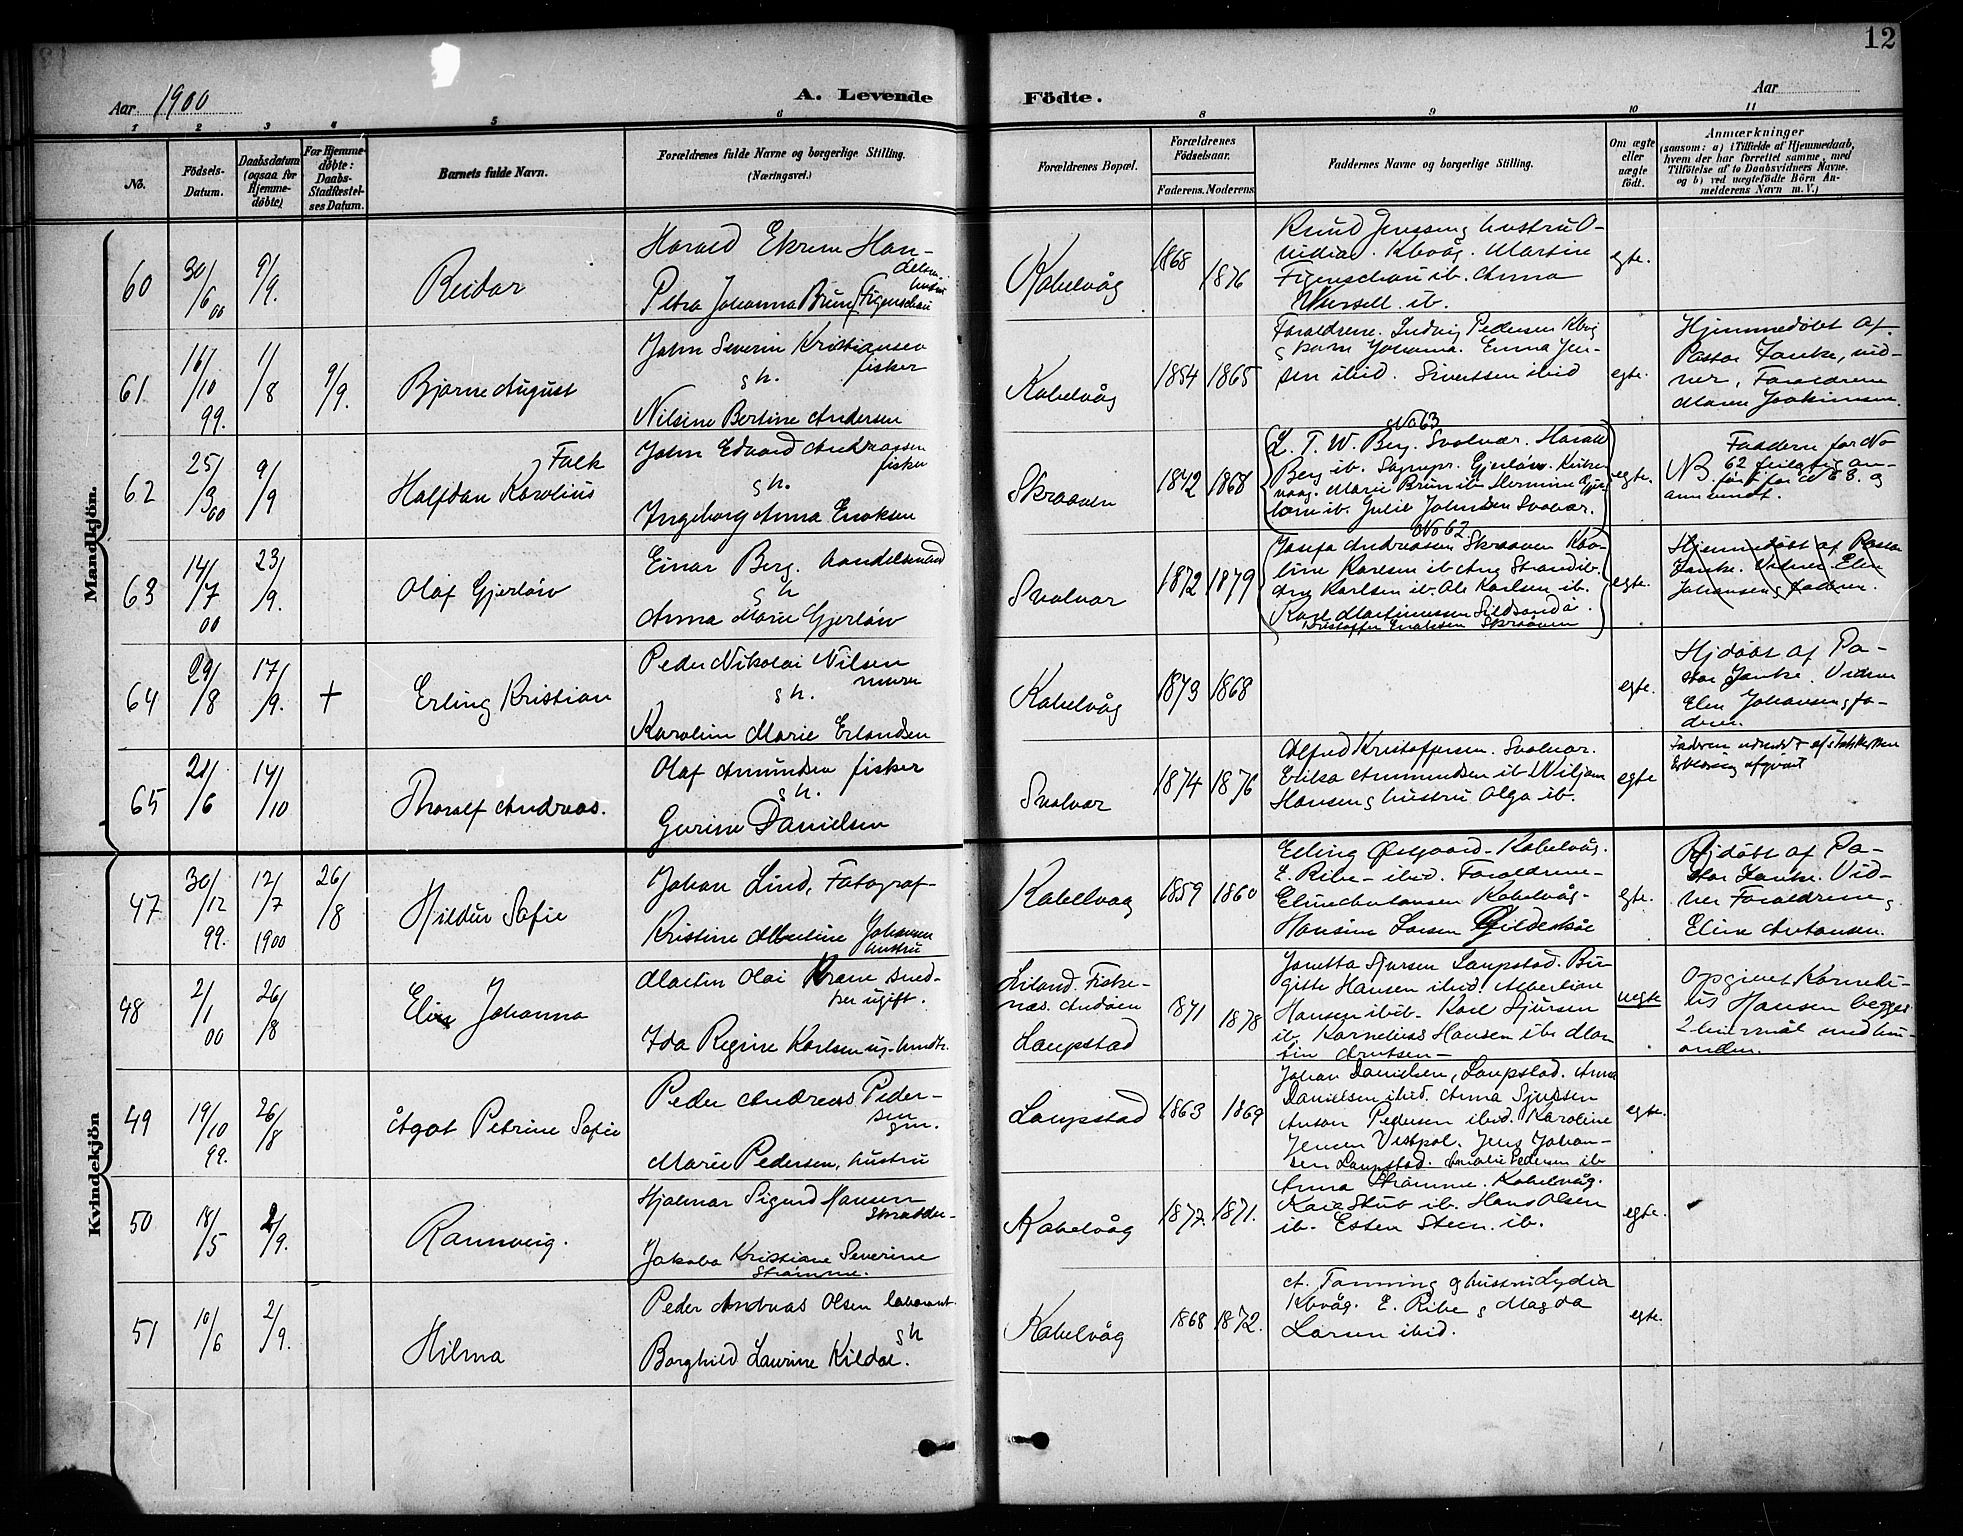 12
Aar 1900
A. Levende
Födte.
Aar
1 2 3 4 5 6 8 9 10 11
No.
Födsels-
Datum.
Daabsdatum
(ogsaa for
Hjemme-
døbte)
For Hjemme-
døbte:
Daabs-
Stadfæstel-
ses Datum.
Barnets fulde Navn.
Forældrenes fulde Navne og borgerlige Stilling.
(Næringsvei.)
Forældrenes Bopæl.
Forældrenes
Fødselsaar.
Faderens. Moderens
Faddernes Navne og borgerlige Stilling.
Om ægte
eller
uægte
født.
Anmærkninger
(saasom: a) i Tilfælde af Hjemmedaab,
hvem der har forrettet samme, med
Tilføielse af to Daabsvidners Navne.
og b) ved uægtefødte Börn An-
melderens Navn m. V.)
Mandkjön.
60
30/6 00
9/9.
Reidar
Harald Ekrem Han-
delsm.
hustru
Petra Johanna Brun Figenschau
Kabelvåg
1868
1876
Knud Jenssen g hustru O-
vidia. Kbvåg. Martin
Figenschau ib. Anna
ib.
egte.
61
16/10 99.
1/8
9/9.
Bjarne August
John Severin Kristiansen
fisker
g h.
Nilsine Bertine Andersen
Kabelvåg
1854 1865
Forældrene. Ludvig Pedersen Kbvg
Johanna. Emma Jen-
sen ibid. Sivertsen ibid
egte.
Hjemmedøbt af
Pastor Janke, vid-
ner, Forældrene
Maren Joakimsen.
62
25/3 00
9/9
Falk
Halfdan Karolius
John Edvard Andreassen
fisker
g h.
Ingeborg Anna Enoksen
Skraaven
1842 1868
No 63
L. T. W. Berg. Svolvær. Harald
Berg ib. Sognepr. Gjerløw. Kirke-
vaag. Marie Brun ib. Hermine Gjer-
løw ib. Julie Johnsen Svolvær.
egte.
Faddere for No
NB 62 feilagtig an-
ført for No 63. og
omvendt.
63
14/7 00
23/9.
Olaf Gjerløw
Einar Berg. handelsmand
g h
Anna Marie Gjerløw
Svolvær
1872 1879
No 62
Josefa Andreassen Skraaven Karo-
line Karlsen ib. Ang Strand ib.
Karlsen ib. Ole Karlsen ib.
Karl Martinussen
Kristoffer Enoksen Skraaven
egte.
Hjemmedøbt af Pastor
Janke. Vidner. Elen
Johansen g faderen.
64
29/8
17/9.
+
Erling Kristian
Peder Nikolai Nilsen
murer
g h.
Karoline Marie Erlandsen
Kabelvåg
1873 1868
egte.
Hjdøbt af Pa-
stor Janke. Vidner
Elen Johansen g fa-
deren.
65
21/6
14/10
Thoralf Andreas.
Olaf Amundsen fisker
g h.
Gurine Danielsen
Svolvær
1874 1876
Alfred Kristoffersen. Svolvær.
Erika Ammundsen ib Wiljam
Hansen g hustru Olga ib.
egte
Faderen udmeldt af statskirken
Erklæring afgivet
Kvindekjön
47
30/12 99.
12/7 1900
26/8
Hildur Sofie
Johan Lind, Fotograf-
Kristine Albertine Johansen
hustru
Kabelvaag
1859 1860
Erling Østgaard. Kabelvåg.
E. Ribe - ibid. Forældrene-
Eline Antonsen Kabelvåg-
Hansine Larsen Gildeskål
egte.
Hjdøbt af Pa-
stor Janke. Vid-
ner Forældrene g
Eline Antonsen.
48
2/1 00
26/8
Eline Johanna
Martin Olai Krane sned-
ker ugift.
Ida Regine Karlsen ug.
Liland. Fiske-
næs. Andöen
Laupstad
1871
1878
Janetta Sjursen Laupstad. Bir-
gitte Hansen ibid. Albertine
Hansen ibid. Karl Sjursen
ib. Kornelius Hansen ib. Mar-
tin Arntsen-
uegte
Opgivet Korneli-
us Hansen begges
2 barnmål med hin-
anden.
49
19/10 99.
26/8
Ågot Petrine Sofie
Peder Andreas Peder-
sen
gm.
Marie Pedersen, hustru
Laupstad
1863 1869
Johan Danielsen, Laupstad. Anna
Danielsen ibid. Anna Sjursen
Anton Pedersen ibid. Karoline
Jensen Vestpol. Jens Johan-
sen Laupstad. Amalie Pedersen ib
egte.
50
18/5
2/9.
Rannveig.
Hjalmar Sigurd Hansen
Skrædder-
Jakoba Kristiane Severine
Strømme.
Kabelvåg
1877. 1871.
Anna Strømme. Kabelvåg.
Kaia Stub ib. Hans Olsen
ib. Esten Steen. ib.
egte.
51
10/6
2/9.
Hilma
Peder Andreas Olsen laborant.
g h
Borghild Laurine Kildal.
Kabelvåg
1868 1872.
A. Tanning g hustru Lydia
Kbvåg. E. Ribe g Magda
Larsen ibid.
egte.